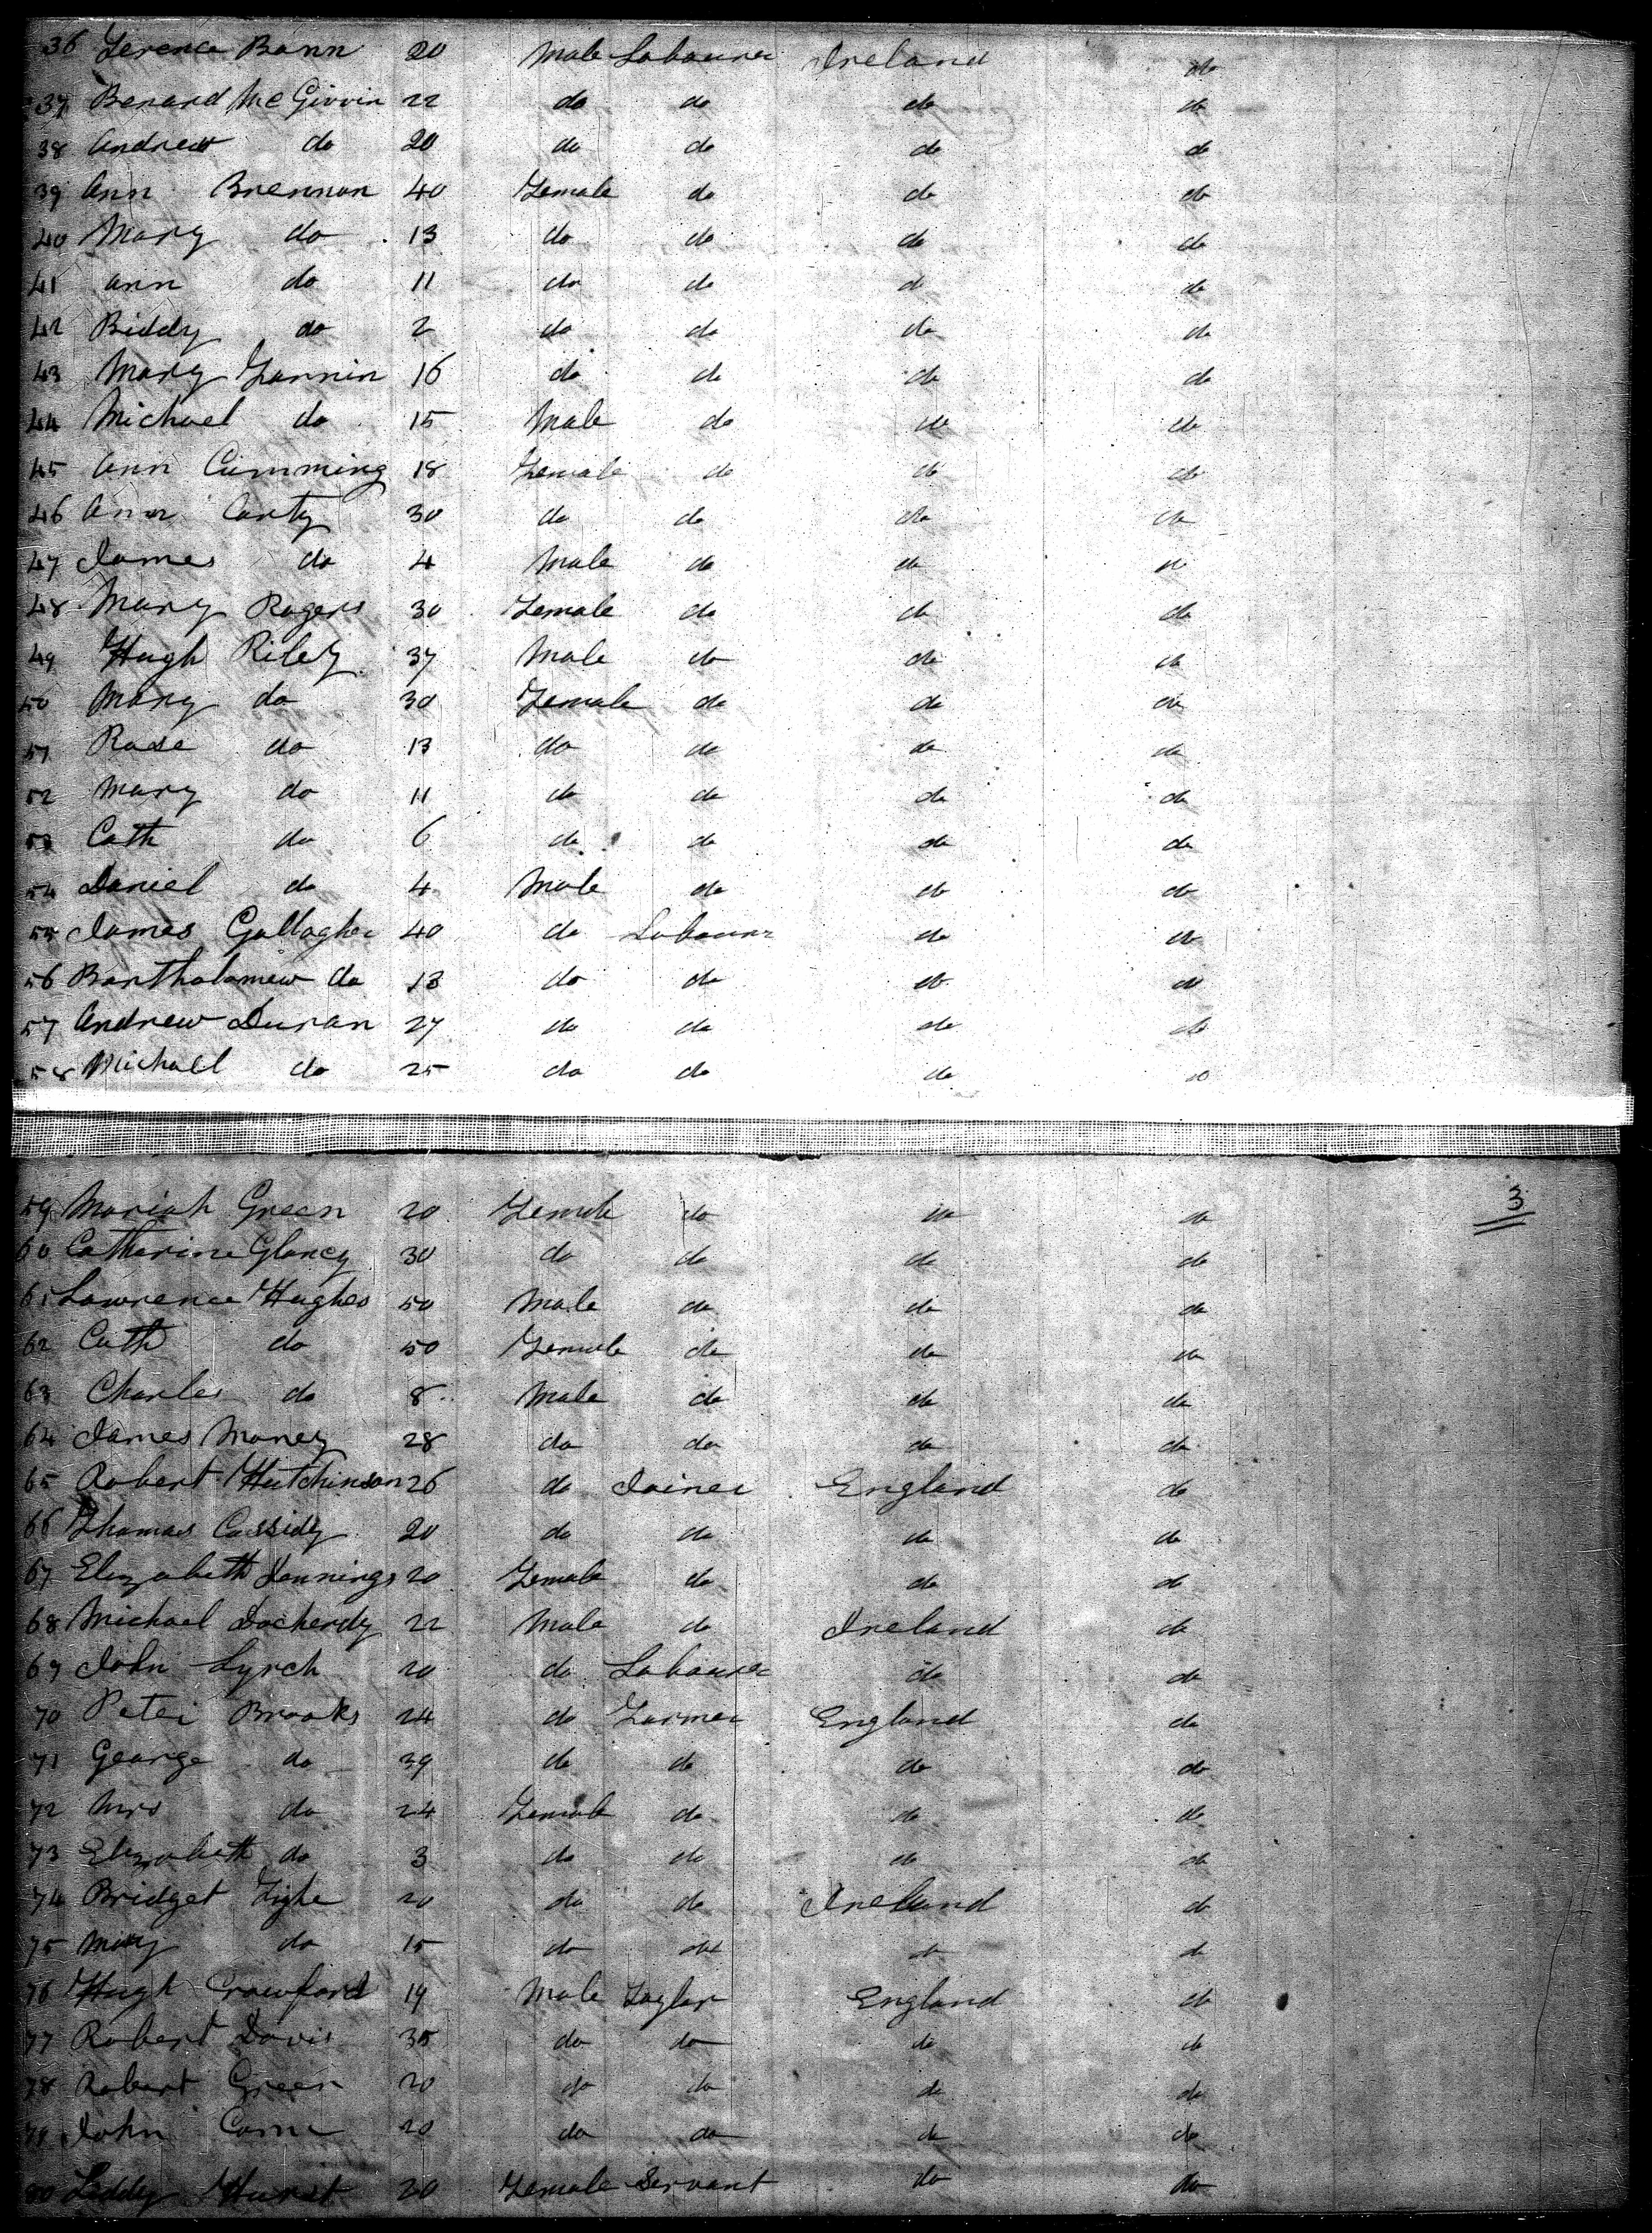 36 Terence Bann 20 Male Labourer Ireland do
37 Benard McGivvin 22 do do do do
38 Andrew do 20 do do do do
39 Ann Brennan 40 Female do do do
40 Mary do 13 do do do do
41 Ann do 11 do do do do
42 Biddy do 2 do do do do
43 Mary Fannin 16 do do do do
44 Michael do 15 Male do do do
45 Ann Cumming 18 Female do do do
46 Ann Carty 30 do do do do
47 James do 4 Male do do do
48 Mary Rogers 30 Female do do do
49 Hugh Riley 37 Male do do do
50 Mary do 30 Female do do do
51 Rose do 13 do do do do
52 Mary do 11 do do do do
53 Cath do 6 do do do do
54 Daniel do 4 Male do do do
55 James Gallagher 40 do Labourer do do
56 Bartholamew do 13 do do do do
57 Andrew Duran 27 do do do do
58 Michael do 25 do do do do
3
59 Mariah Green 20 Female do do do
60 Catharine Glancy 30 do do do do
61 Lawrence Hughes 50 Male do do do
62 Cath do 50 Female do do do
63 Charles do 8 Male do do do
64 James Money 28 do do do do
65 Robert Hutchinson 26 do Joiner England do
66 Thomas Cassidy 20 do do do do
67 Elizabeth Jennings 20 Female do do do
68 Michael Docherdy 22 Male do Ireland do
69 John Lynch 20 do Labourer do do
70 Peter Brooks 24 do Farmer England do
71 George do 39 do do do do
72 Mrs do 24 Female do do do
73 Elizabeth do 3 do do do do
74 Bridget Tighe 20 do do Ireland do
75 Mary do 15 do do do do
76 Hugh Crawford 19 Male Taylor England do
77 Robert Davis 35 do do do do
78 Robert Green 20 do do do do
79 John 20 do do do do
80 Liddy Hurst 20 Female Servant do do